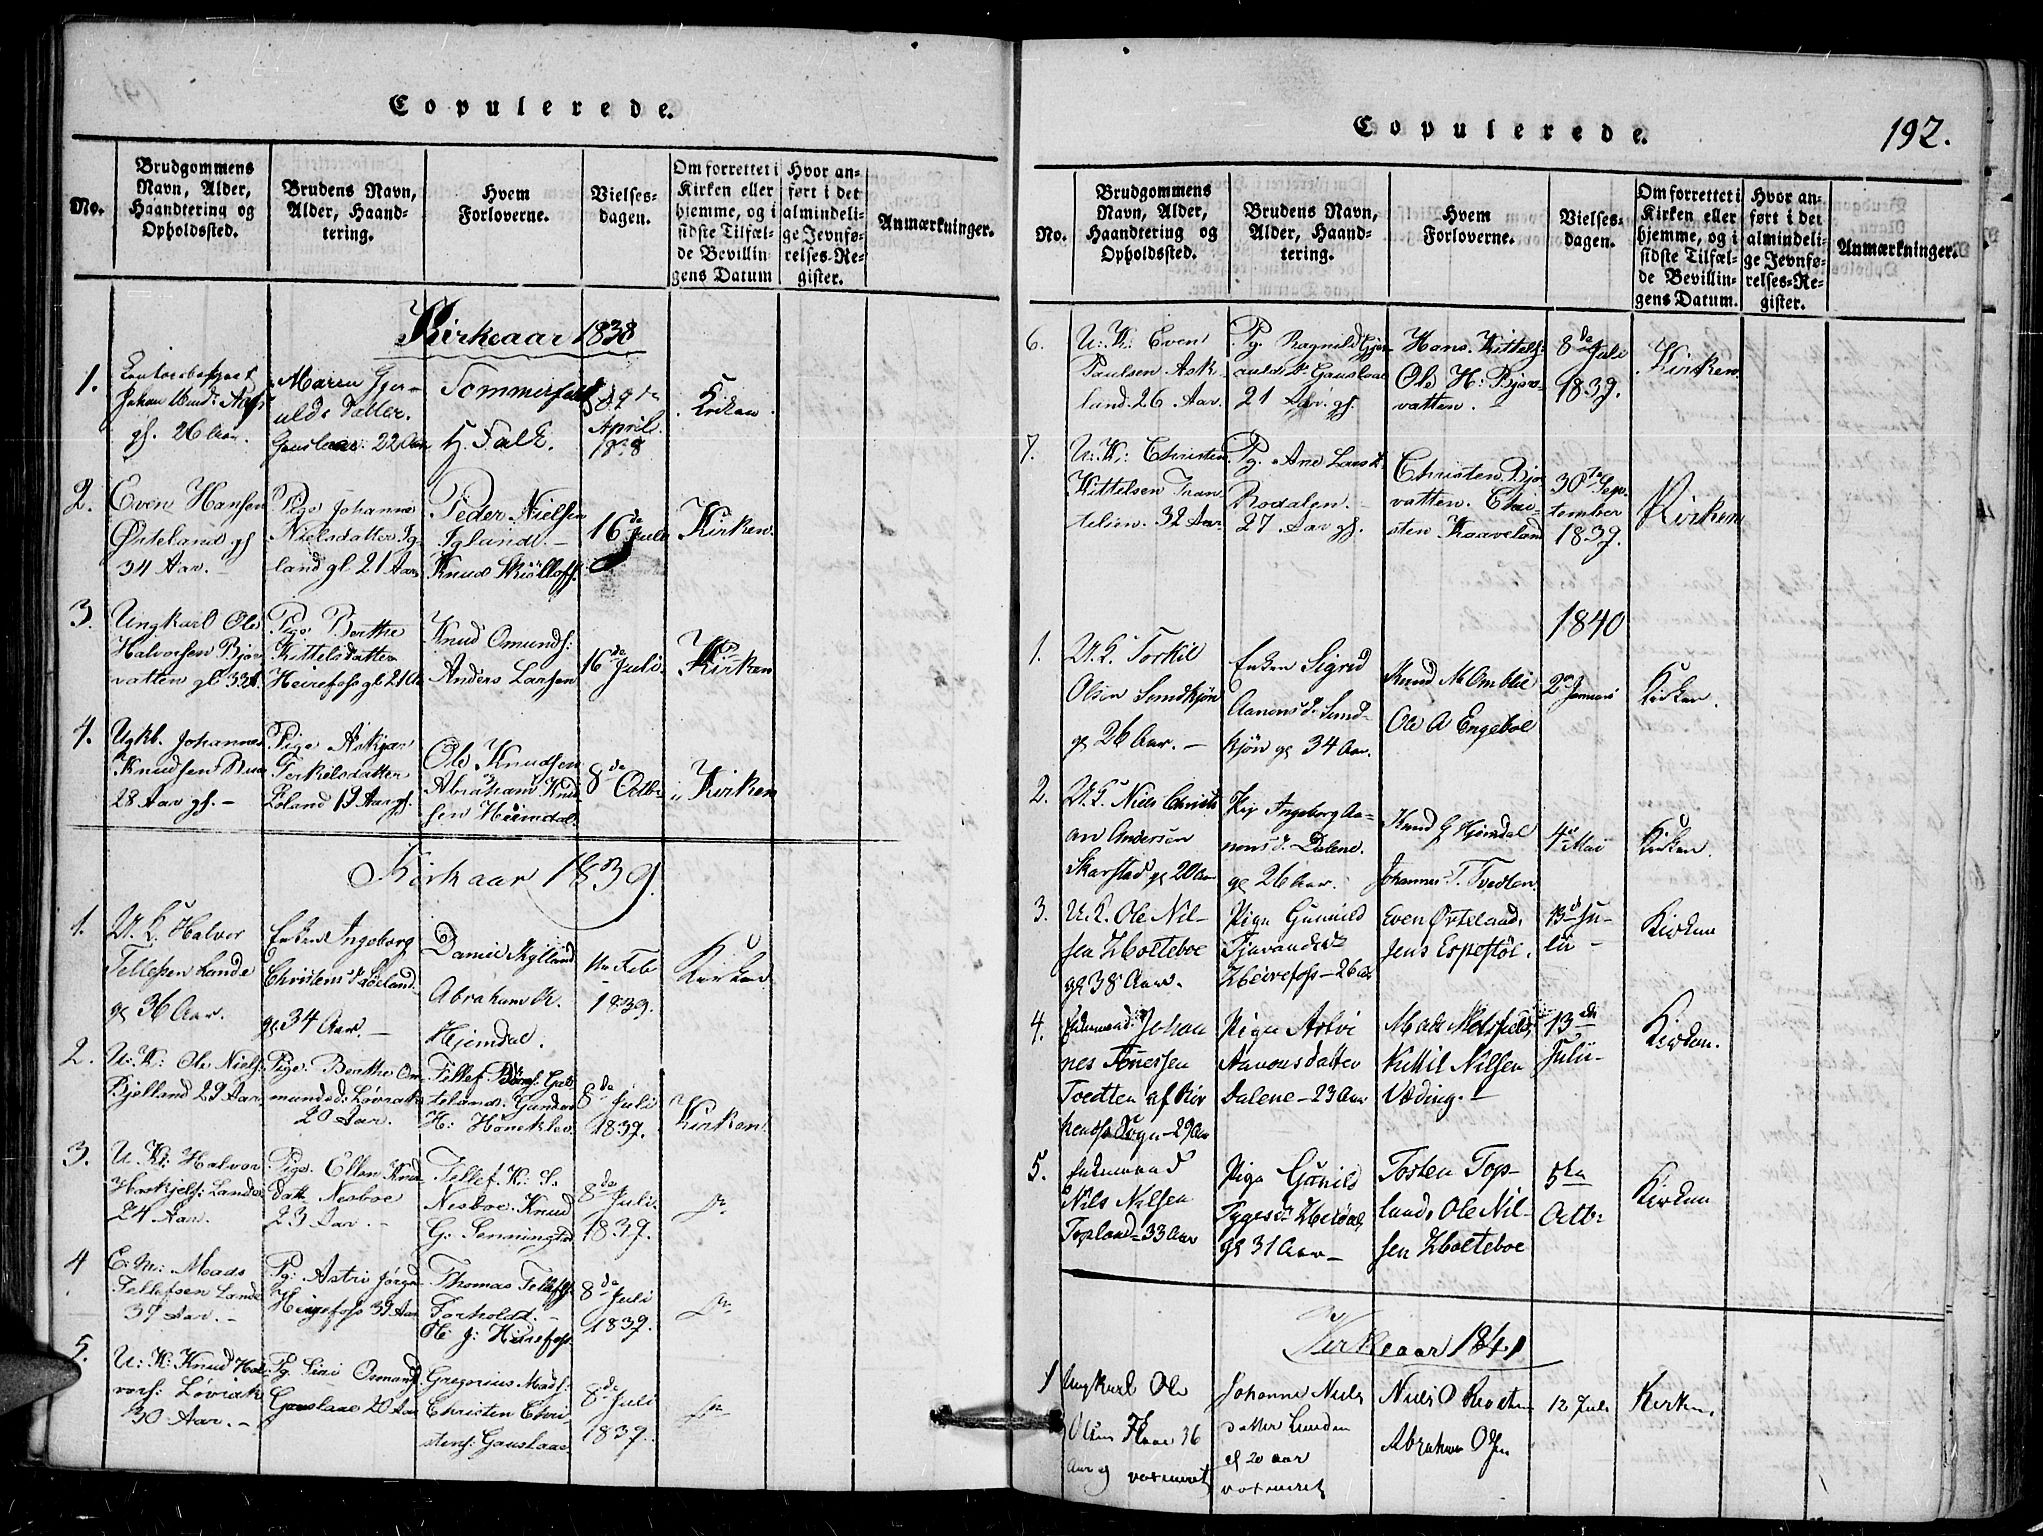 Copulerede.
No.
Brudgommens
Navn, Alder,
Haandtering og
Opholdssted.
Brudens Navn,
Alder, Haand-
tering.
Hvem
Forloverne.
Vielses-
dagen.
Om forrettet i
Kirken eller
hjemme, og i
sidste Tilfæl-
de Bevillin-
gens Datum
Hvor an-
ført i det
almindeli-
ge Jevnfø-
relses-Re-
gister.
Anmærkninger.
Kirkeaar 1838
1.
gl. 26 Aar.
Maren Gjer-
ulds Datter.
Gauslaae. 22 Aar
Sommerfeldt
H. Falk.
April.
1838
Kirken.
2.
Even Hansen
Østeland gl
34 Aar. -
Pige Johanne
Nielsdatter Ig-
land gl 21 Aar
Peder Nielsen
Iglandt. -
Knud
16de Juli
Kirken.
3.
Ungkarl Ole
Halvorsen Bjor-
vatten gl 33 A.
Pige Berthe
Kittelsdatter
Heirefoss gl 21 Aar
Knud Omunds:
Anders Larsen
16de Juli.
Kirken
4.
Ugkl. Johannes
Knudsen
28 Aar gl. -
Pige Askjær
Terkelsdatter
Loland 19 Aar gl.
Ole Knudsen
Abraham Knud-
sen Heimdal.
8de Octbr
Kirken
Kirkaar 1839.
1.
U. K. Halvor
Tellefsen Lande
gl 36 Aar.
Enken Ingeborg
Christens D.
gl 34 Aar -
Daniel
Abraham K.
Hjemdal.
11te Feb
1839.
Kirken
2.
U: K: Ole Niels:
Bjelland 29 Aar.
Pige. Berthe Om-
mundsd: Løvrak
20 Aar.
Tellef
teland. Gunder
H: Høneklev.
8de Juli
1839.
Kirken.
3.
U: K: Halvor
Lande
24 Aar.
Pige. Ellen Knud
datt. Nesboe
23 Aar. -
Tellef. K: S.
Nesboe. Knud
G. Senningstad
8de Juli.
1839.
4
E: M: Mads
Tellefsen Lande
37 Aar. -
Pg: Astri Jørgen
Heirefoss 39 Aar
Thomas Tellefs:
Forholdt. -
Ole J: Heirefoss.
8de Juli
1839.
5.
U: K: Knud Hal-
vors: Løvrak
30 Aar. -
Pg. Siri Osmunds:
Gauslaae 20 Aar
Gregorius Mads:
Christen Chri-
stens: Gauslaae
8de Juli
1839.
Copulerede.
192.
No.
Brudgommens
Navn, Alder,
Haandtering og
Opholdssted.
Brudens Navn,
Alder, Haand-
tering.
Hvem
Forloverne.
Vielses-
dagen.
Om forrettet i
Kirken eller
hjemme, og i
sidste Tilfæl-
de Bevillin-
gens Datum.
Hvor an-
ført i det
almindeli-
ge Jevnfø-
relses-Re-
gister.
Anmærkninger.
6.
U: K: Even
Paulsen Ask-
land. 26 Aar.
Pg. Ragnild Gjer-
ulds D. Gauslaae
21 Aar. gl.
Hans Kittels:
Ole H: Bjor-
vatten. -
8de Juli
1839.
Kirken.
7.
U: K: Christen
Kittelsen Tran-
telien. 32 Aar.
Pg. Ane Lars d.
Rodalen. -
27 Aar gl.
Christen Bjor-
vatten. Chri-
sten Kaaveland
30te Sep-
tember
1839.
Kirken
1840
1.
U. K. Torkil
Olsen Sundkjøn
gl 26 Aar. -
Enken Sigrid
Aanons d. Sund-
kjøn gl 34 Aar.
Knud M Omblie
Ole A Engeboe
2den Januari
Kirken.
2.
U. K. Niels Christi-
an Andersen
Skarstad gl 20 Aar
Pige Ingeborg Aa-
nons d. Dalene.
gl 26 Aar.
Knud G Hjemdal
Johannes T. Tvedten
4de Mai
Kirken.
3.
U. K. Ole Nil-
sen Holteboe
gl 38 Aar.
Pigen Gunild
Tjøvandsdt
Heirefoss - 26 Aar
Even Østeland,
Jens Espestøl.
13d Ju-
lii -
Kirken
4.
Enkemand: Johan
nes Tønessen
Tvedten af Her
Sogn - 29 Aar
Pigen Astri
Aanonsdatter
Dalene - 23 Aar
Mads
Kittil Nilsen
Væding. -
13de
Julii -
Kirken.
5.
Enkemand
Nils Nilsen
Topland - 33 Aar
Pigen Gunild
Tygesdt Heidal,
gl 31 Aar -
Tosten Top-
land, Ole Nil-
sen Holteboe
5te
Octbr
Kirken
Kirkeaar 1841
1
Ungkarl Ole
Olsen Flaae 36
Aar gl vaxineret
Johanne Niels
datter Lunden
gl 20 aar
vaxineret
Niels O
Abraham Olsen
12 Juli
Kirken.